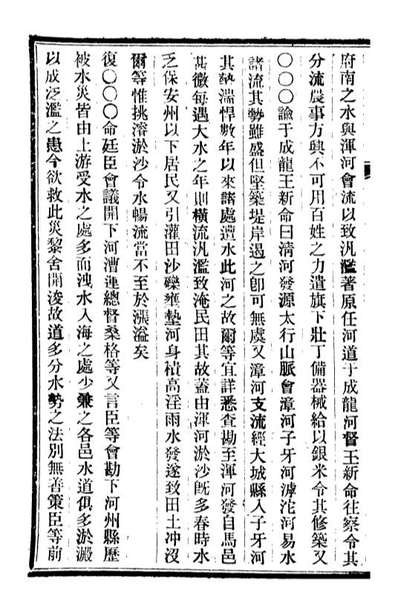 府南之水與渾河會流以致汎濫著原任河道于成龍河督王新命往察令其
分流農事方興不可用百姓之力遣旗下壯丁備器械給以銀米令其修築又
〇〇〇諭于成龍王新命曰清河發源太行山脈會漳河子牙河滹沱河易水
諸流其勢雖盛但堅築堤岸遏之卽可無虞又漳河支流經大城縣入子牙河
其勢湍悍數年以來諸處遭水此河之故爾等宜詳悉查勘至渾河發自馬邑
甚微每遇大水之年則橫流汎濫致淹民田其故蓋由渾河淤沙旣多春時水
乏保安州以下居民又引灌田沙礫壅墊河身積高淫雨水發遂致田土冲沒
爾等惟挑濬淤沙令水暢流當不至於漲溢矣
復〇〇〇命廷臣會議開下河漕運總督桑格等又言臣等會勘下河州縣歷
被水災皆由上游受水之處多而洩水入海之處少兼之各邑水道俱多淤澱
以成泛濫之患今欲救此災黎舍開浚故道多分水勢之法別無善策臣等前